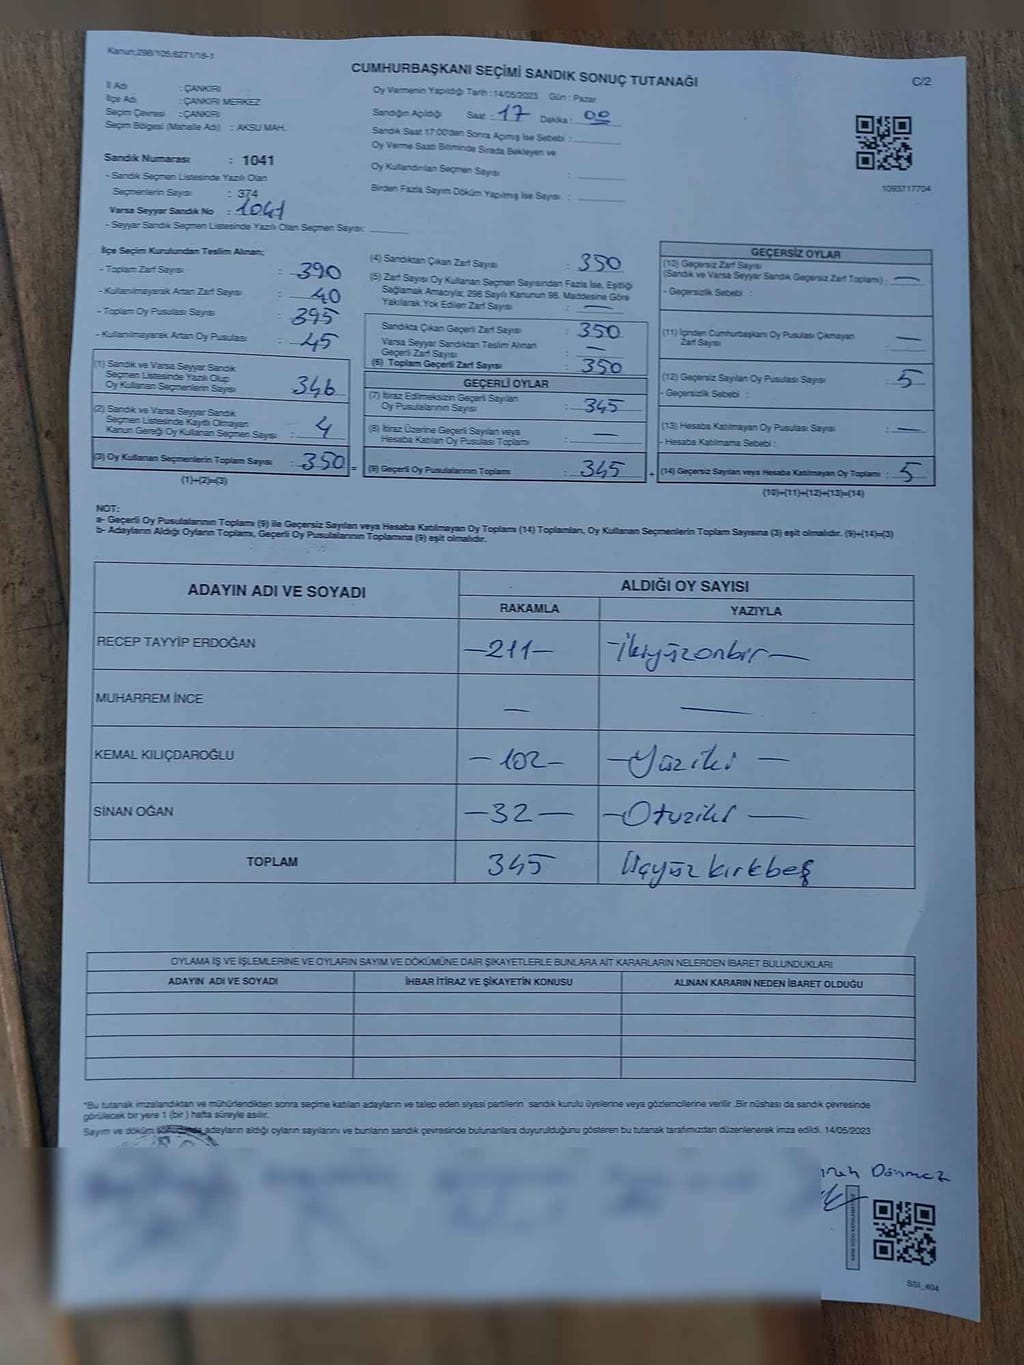 Kanun:298/105;6271/18-1
CUMHURBAŞKANI SEÇİMİ SANDIK SONUÇ TUTANAĞI
C/2
İl Adı : ÇANKIRI
İlçe Adı : ÇANKIRI MERKEZ
Seçim Çevresi : ÇANKIRI
Seçim Bölgesi (Mahalle Adı) : AKSU MAH.
Sandık Numarası : 1041
- Sandık Seçmen Listesinde Yazılı Olan
Seçmenlerin Sayısı : 374
Varsa Seyyar Sandık No : 1041
- Seyyar Sandık Seçmen Listesinde Yazılı Olan Seçmen Sayısı:
Oy Vermenin Yapıldığı Tarih : 14/05/2023 Gün : Pazar
Sandığın Açıldığı Saat : 17 Dakika : 00
Sandık Saat 17:00'den Sonra Açımış İse Sebebi :
Oy Verme Saati Bitiminde Sırada Bekleyen ve
Oy Kullandırılan Seçmen Sayısı :
Birden Fazla Sayım Döküm Yapılmış İse Sayısı :
1093717704
İlçe Seçim Kurulundan Teslim Alınan;
- Toplam Zarf Sayısı : 390
- Kullanılmayarak Artan Zarf Sayısı : 40
- Toplam Oy Pusulası Sayısı : 395
- Kullanılmayarak Artan Oy Pusulası : 45
(1) Sandık ve Varsa Seyyar Sandık
Seçmen Listesinde Yazılı Olup
Oy Kullanan Seçmenlerin Sayısı : 346
(2) Sandık ve Varsa Seyyar Sandık
Seçmen Listesinde Kayıtlı Olmayan
Kanun Gereği Oy Kullanan Seçmen Sayısı : 4
(3) Oy Kullanan Seçmenlerin Toplam Sayısı : 350 =
(1)+(2)=(3)
(4) Sandıktan Çıkan Zarf Sayısı : 350
(5) Zarf Sayısı Oy Kullanan Seçmen Sayısından Fazla İse, Eşitliği
Sağlamak Amacıyla; 298 Sayılı Kanunun 98. Maddesine Göre
Yakılarak Yok Edilen Zarf Sayısı : —
Sandıkta Çıkan Geçerli Zarf Sayısı : 350
Varsa Seyyar Sandıktan Teslim Alınan
Geçerli Zarf Sayısı : —
(6) Toplam Geçerli Zarf Sayısı : 350
GEÇERLİ OYLAR
(7) İtiraz Edilmeksizin Geçerli Sayılan
Oy Pusulalarının Sayısı : 345
(8) İtiraz Üzerine Geçerli Sayılan veya
Hesaba Katılan Oy Pusulası Toplamı : —
(9) Geçerli Oy Pusulalarının Toplamı : 345 +
GEÇERSİZ OYLAR
(10) Geçersiz Zarf Sayısı
(Sandık ve Varsa Seyyar Sandık Geçersiz Zarf Toplamı) : —
- Geçersizlik Sebebi :
(11) İçinden Cumhurbaşkanı Oy Pusulası Çıkmayan
Zarf Sayısı : —
(12) Geçersiz Sayılan Oy Pusulası Sayısı : 5
- Geçersizlik Sebebi :
(13) Hesaba Katılmayan Oy Pusulası Sayısı : —
- Hesaba Katılmama Sebebi :
(14) Geçersiz Sayılan veya Hesaba Katılmayan Oy Toplamı : 5
(10)+(11)+(12)+(13)=(14)
NOT:
a- Geçerli Oy Pusulalarının Toplamı (9) ile Geçersiz Sayılan veya Hesaba Katılmayan Oy Toplamı (14) Toplamları, Oy Kullanan Seçmenlerin Toplam Sayısına (3) eşit olmalıdır. (9)+(14)=(3)
b- Adayların Aldığı Oyların Toplamı, Geçerli Oy Pusulalarının Toplamına (9) eşit olmalıdır.
ADAYIN ADI VE SOYADI ALDIĞI OY SAYISI
RAKAMLA YAZIYLA
RECEP TAYYİP ERDOĞAN —211— —İkiyüzonbir—
MUHARREM İNCE — —
KEMAL KILIÇDAROĞLU —102— —Yüziki—
SİNAN OĞAN —32— —Otuziki—
TOPLAM 345 Üçyüzkırkbeş
OYLAMA İŞ VE İŞLEMLERİNE VE OYLARIN SAYIM VE DÖKÜMÜNE DAİR ŞİKAYETLERLE BUNLARA AİT KARARLARIN NELERDEN İBARET BULUNDUKLARI
ADAYIN ADI VE SOYADI İHBAR İTİRAZ VE ŞİKAYETİN KONUSU ALINAN KARARIN NEDEN İBARET OLDUĞU
*Bu tutanak imzalandıktan ve mühürlendikten sonra seçime katılan adayların ve talep eden siyasi partilerin sandık kurulu üyelerine veya gözlemcilerine verilir .Bir nüshası da sandık çevresinde
görülecek bir yere 1 (bir ) hafta süreyle asılır.
Sayım ve döküm adayların aldığı oyların sayılarını ve bunların sandık çevresinde bulunanlara duyurulduğunu gösteren bu tutanak tarafımızdan düzenlenerek imza edildi. 14/05/2023
Dönmez
SSI_404